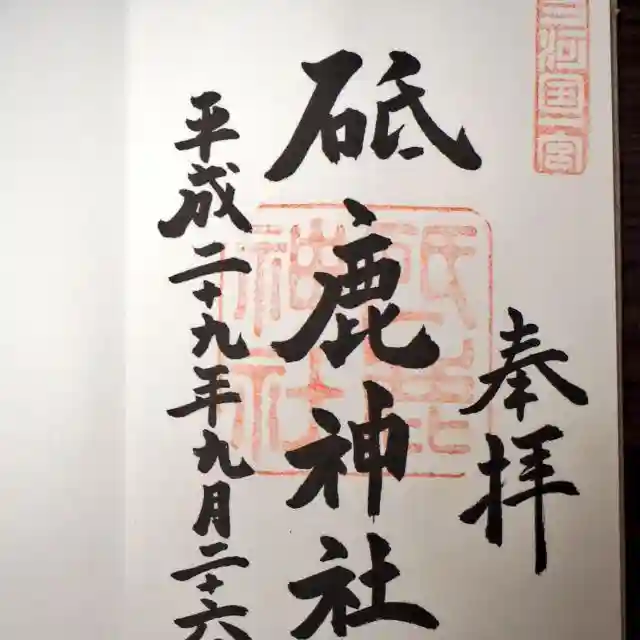 三河国一宮
奉拝
砥鹿神社
砥鹿神社
平成二十九年九月二十六